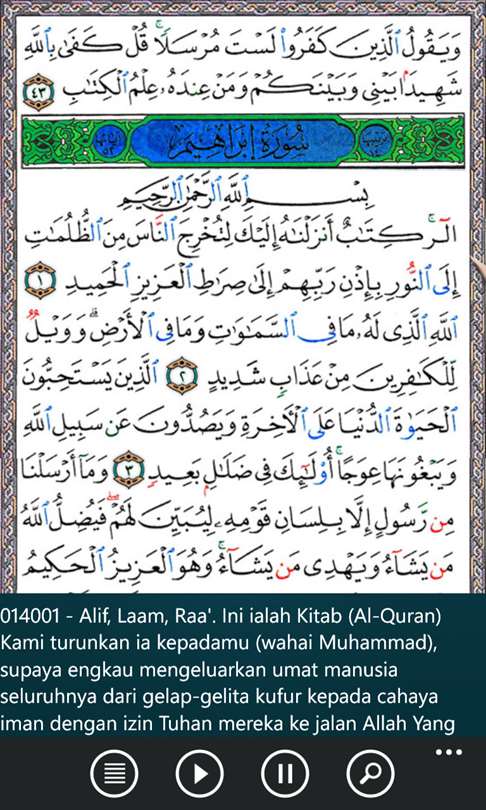 وَيَقُولُ الَّذِينَ كَفَرُوا لَسْتَ مُرْسَلًا ۚ قُلْ كَفَىٰ بِاللَّهِ
شَهِيدًا بَيْنِي وَبَيْنَكُمْ وَمَنْ عِندَهُ عِلْمُ الْكِتَابِ ٤٣
سُورَةُ إِبْرَاهِيمَ
بِسْمِ اللَّهِ الرَّحْمَٰنِ الرَّحِيمِ
الٓر ۚ كِتَابٌ أَنزَلْنَاهُ إِلَيْكَ لِتُخْرِجَ النَّاسَ مِنَ الظُّلُمَاتِ
إِلَى النُّورِ بِإِذْنِ رَبِّهِمْ إِلَىٰ صِرَاطِ الْعَزِيزِ الْحَمِيدِ ١
اللَّهِ الَّذِي لَهُ مَا فِي السَّمَاوَاتِ وَمَا فِي الْأَرْضِ ۗ وَوَيْلٌ
لِّلْكَافِرِينَ مِنْ عَذَابٍ شَدِيدٍ ٢ الَّذِينَ يَسْتَحِبُّونَ
الْحَيَاةَ الدُّنْيَا عَلَى الْآخِرَةِ وَيَصُدُّونَ عَن سَبِيلِ اللَّهِ
وَيَبْغُونَهَا عِوَجًا ۚ أُولَٰئِكَ فِي ضَلَالٍ بَعِيدٍ ٣ وَمَا أَرْسَلْنَا
مِن رَّسُولٍ إِلَّا بِلِسَانِ قَوْمِهِ لِيُبَيِّنَ لَهُمْ ۖ فَيُضِلُّ اللَّهُ
مَن يَشَاءُ وَيَهْدِي مَن يَشَاءُ ۚ وَهُوَ الْعَزِيزُ الْحَكِيمُ
014001 - Alif, Laam, Raa'. Ini ialah Kitab (Al-Quran)
Kami turunkan ia kepadamu (wahai Muhammad),
supaya engkau mengeluarkan umat manusia
seluruhnya dari gelap-gelita kufur kepada cahaya
iman dengan izin Tuhan mereka ke jalan Allah Yang